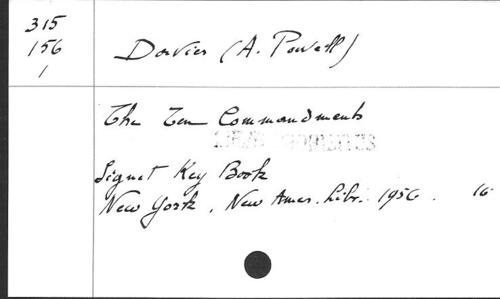 315
156
1
Davies (A. Powell)
The Ten Commandments
Signet Key Book
New York, New Amer. Libr. 1956. 16